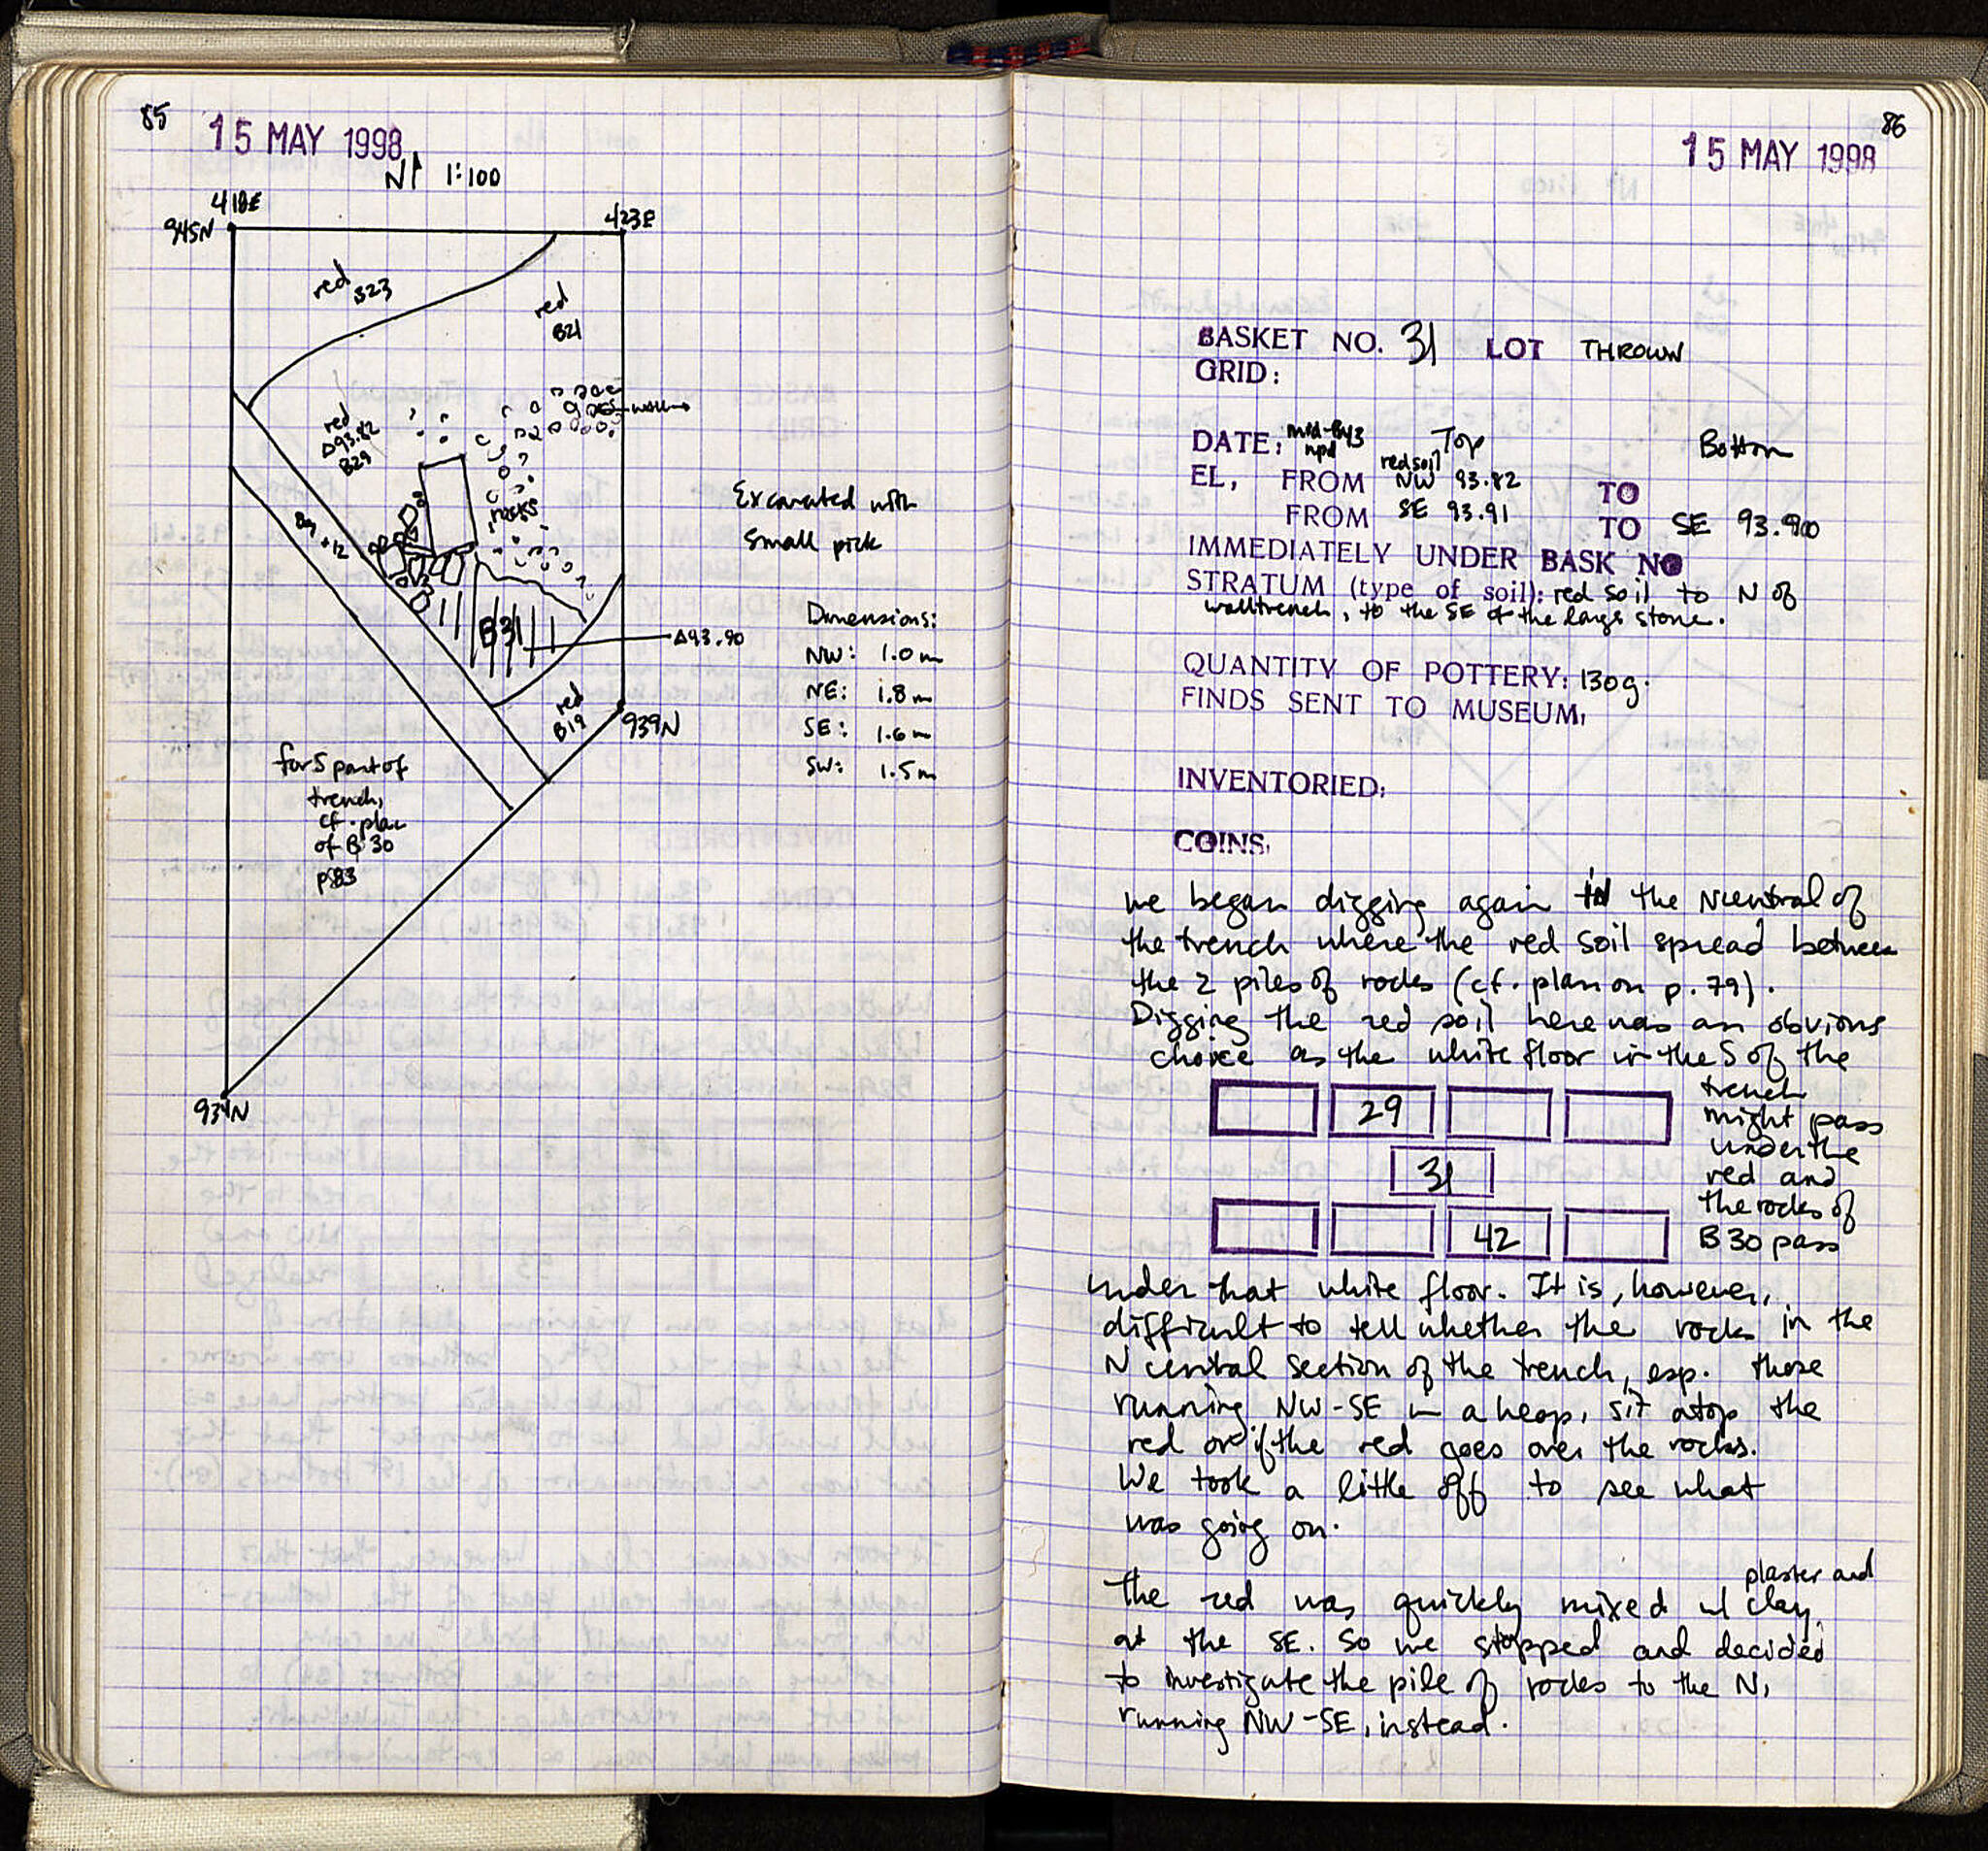 85
15 MAY 1998
N 1:100
418E
423E
945N
red B23
red
B21
wall
red
Δ93.82
B29
rocks
B9
+12
Excavated with
small pick
B31
Δ93.90
Dimensions:
NW: 1.0m
NE: 1.8m
SE: 1.6m
SW: 1.5m
red
B19
939N
for S part of
trench,
cf. plan
of B30
p83
934N
86
15 MAY 1998
BASKET NO. 31 LOT THROWN
GRID:
DATE: Top Bottom
red soil
EL, FROM NW 93.82 TO
FROM SE 93.91 TO SE 93.90
IMMEDIATELY UNDER BASK NO
STRATUM (type of soil): red soil to N of
walltrench, to the SE of the large stone.
QUANTITY OF POTTERY: 130g.
FINDS SENT TO MUSEUM,
INVENTORIED:
COINS,
we began digging again in the Ncentral of
the trench where the red soil spread between
the 2 piles of rocks (cf. plan on p. 79).
Digging the red soil here was an obvious
choice as the white floor in the S of the
trench
might pass
under the
red and
the rocks of
B30 pass
29
31
42
under that white floor. It is, however,
difficult to tell whether the rocks in the
N central section of the trench, esp. those
running NW-SE in a heap, sit atop the
red or if the red goes over the rocks.
We took a little off to see what
was going on.
plaster and
the red was quickly mixed w/ clay
at the SE. So we stopped and decided
to investigate the pile of rocks to the N,
running NW-SE, instead.